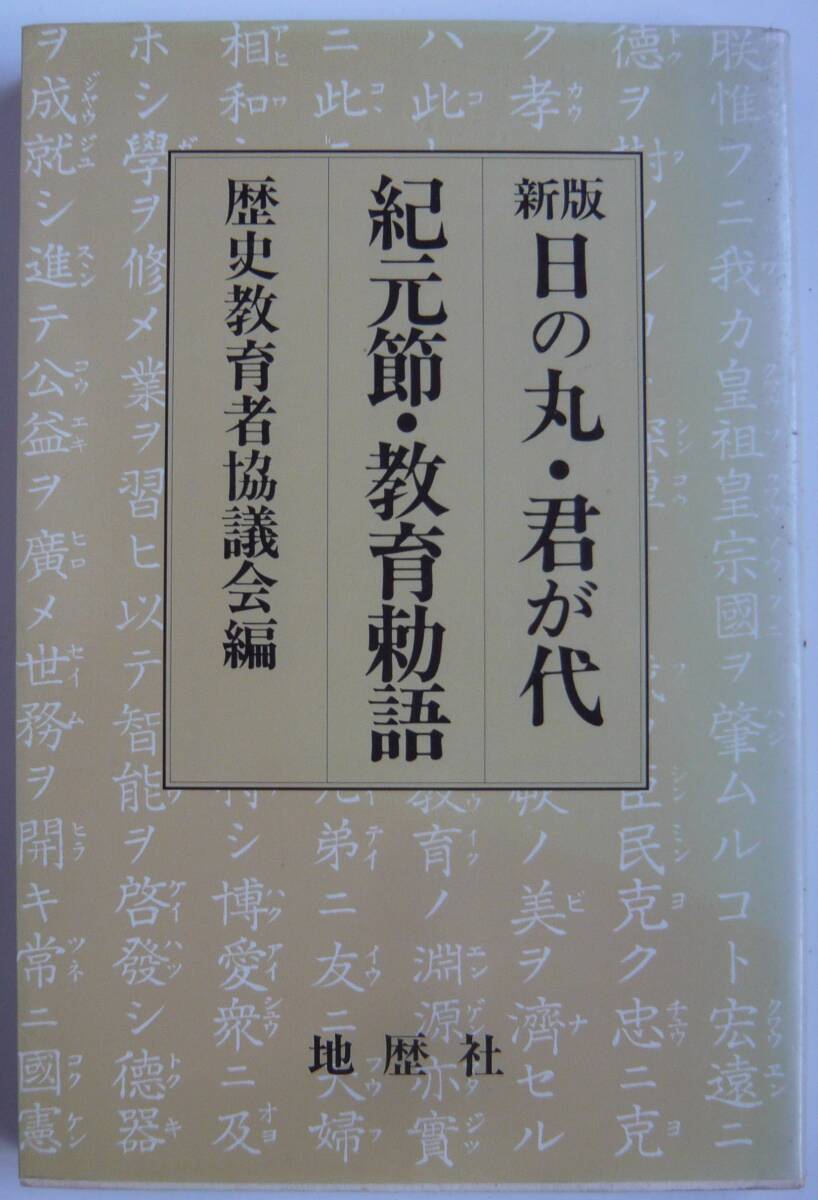 新版 日の丸・君が代
紀元節・教育勅語
歴史教育者協議会編
地歴社
朕惟フニ我カ皇祖皇宗國ヲ肇ムルコト宏遠ニ
德ヲ
臣民克ク忠ニ克
ク孝
ノ美ヲ濟セル
ハ此
教育ノ淵源亦實
ニ此
弟ニ友ニ夫婦
相和
シ博愛衆ニ及
ホシ學ヲ修メ業ヲ習ヒ以テ智能ヲ啓發シ德器
ヲ成就シ進テ公益ヲ廣メ世務ヲ開キ常ニ國憲